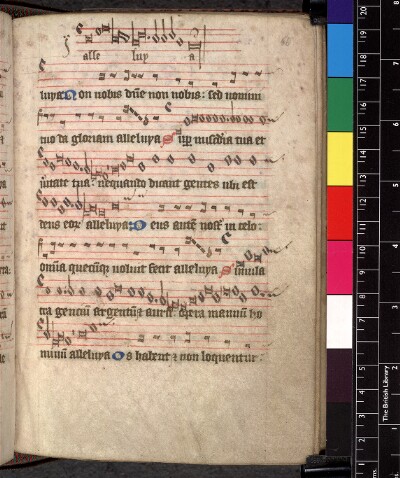 alle luy a
luya Non nobis dñe non nobis: sed nomini
tuo da gloriam alleluya Sup misc̄dia tua et
ūitate tua: nequando dicant gentes ubi est
deus eoꝝ alleluya: Deus autē nosť in celo:
omīa quecūqꝫ uoluit fecit alleluya Simula
cra genciū argentū ⁊ aurū: opera manuū ho
minū alleluya Os habent ⁊ non loquentur:
The British Library